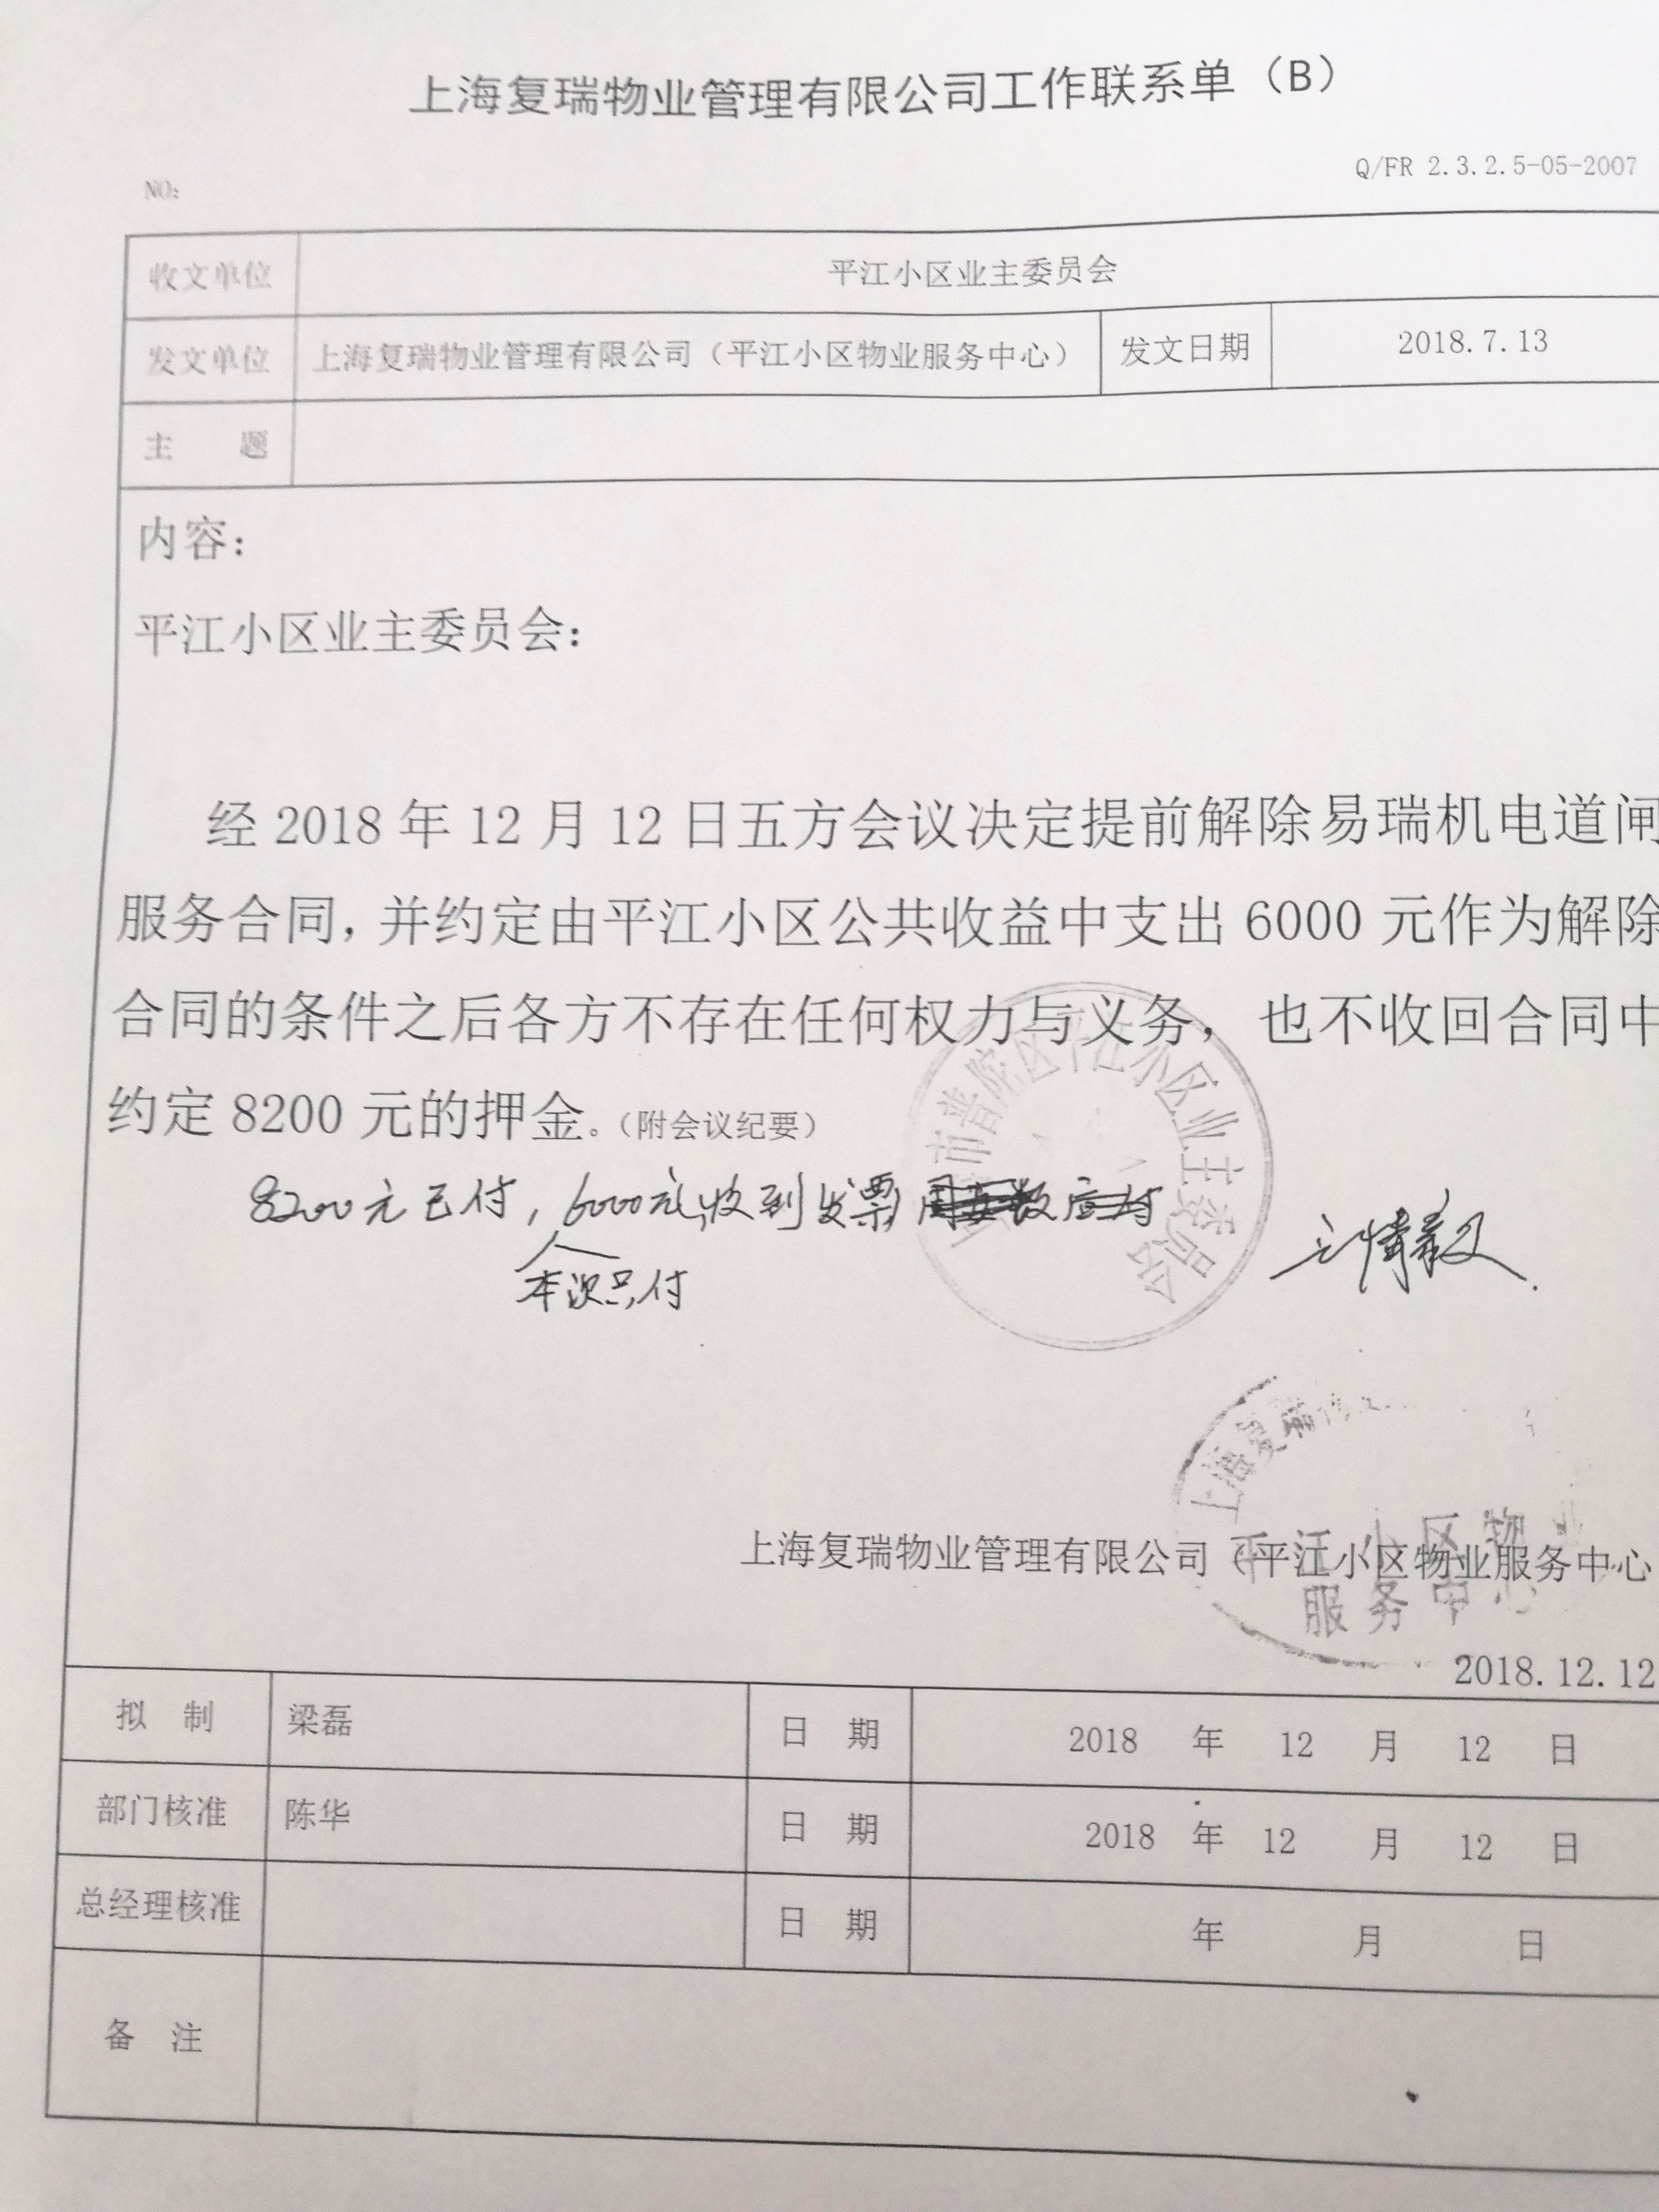 上海复瑞物业管理有限公司工作联系单（B）
Q/FR 2.3.2.5-05-2007
NO:
收文单位 平江小区业主委员会
发文单位 上海复瑞物业管理有限公司（平江小区物业服务中心） 发文日期 2018.7.13
主 题
内容：
平江小区业主委员会：
经 2018 年 12 月 12 日五方会议决定提前解除易瑞机电道闸
服务合同，并约定由平江小区公共收益中支出 6000 元作为解除
合同的条件之后各方不存在任何权力与义务，也不收回合同中
约定 8200 元的押金。（附会议纪要）
8200元已付，6000元收到发票
本次只付
市普陀区 小区业主委员会
上海复瑞
上海复瑞物业管理有限公司（平江小区物业服务中心
平江小区物业
服务中心
2018.12.12
拟 制 梁磊 日 期 2018 年 12 月 12 日
部门核准 陈华 日 期 2018 年 12 月 12 日
总经理核准 日 期 年 月 日
备 注